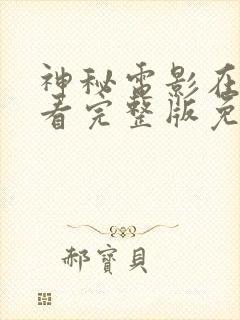 神秘雷影在
看完整版免
郝寶貝